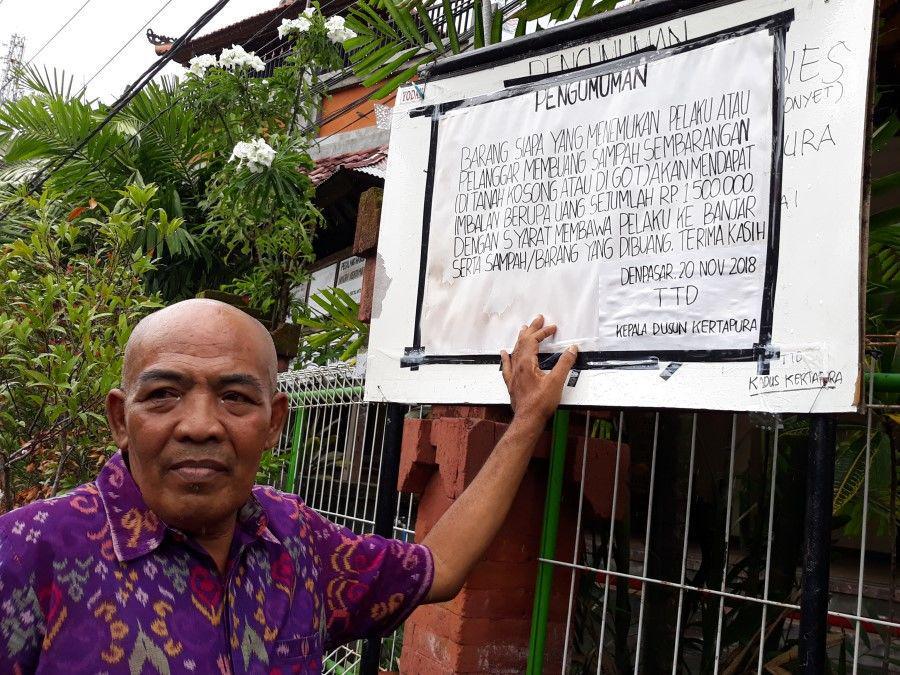 PENGUMUMAN
TODA
PENGUMUMAN
BARANG SIAPA YANG MENEMUKAN PELAKU ATAU
PELANGGAR MEMBUANG SAMPAH SEMBARANGAN
(DI TANAH KOSONG ATAU DI GOT) AKAN MENDAPAT
IMBALAN BERUPA UANG SEJUMLAH RP 1.500.000,
DENGAN SYARAT MEMBAWA PELAKU KE BANJAR
SERTA SAMPAH/BARANG YANG DIBUANG. TERIMA KASIH
DENPASAR. 20 NOV 2018
TTD
KEPALA DUSUN KERTAPURA
TTD
KADUS KERTAPURA